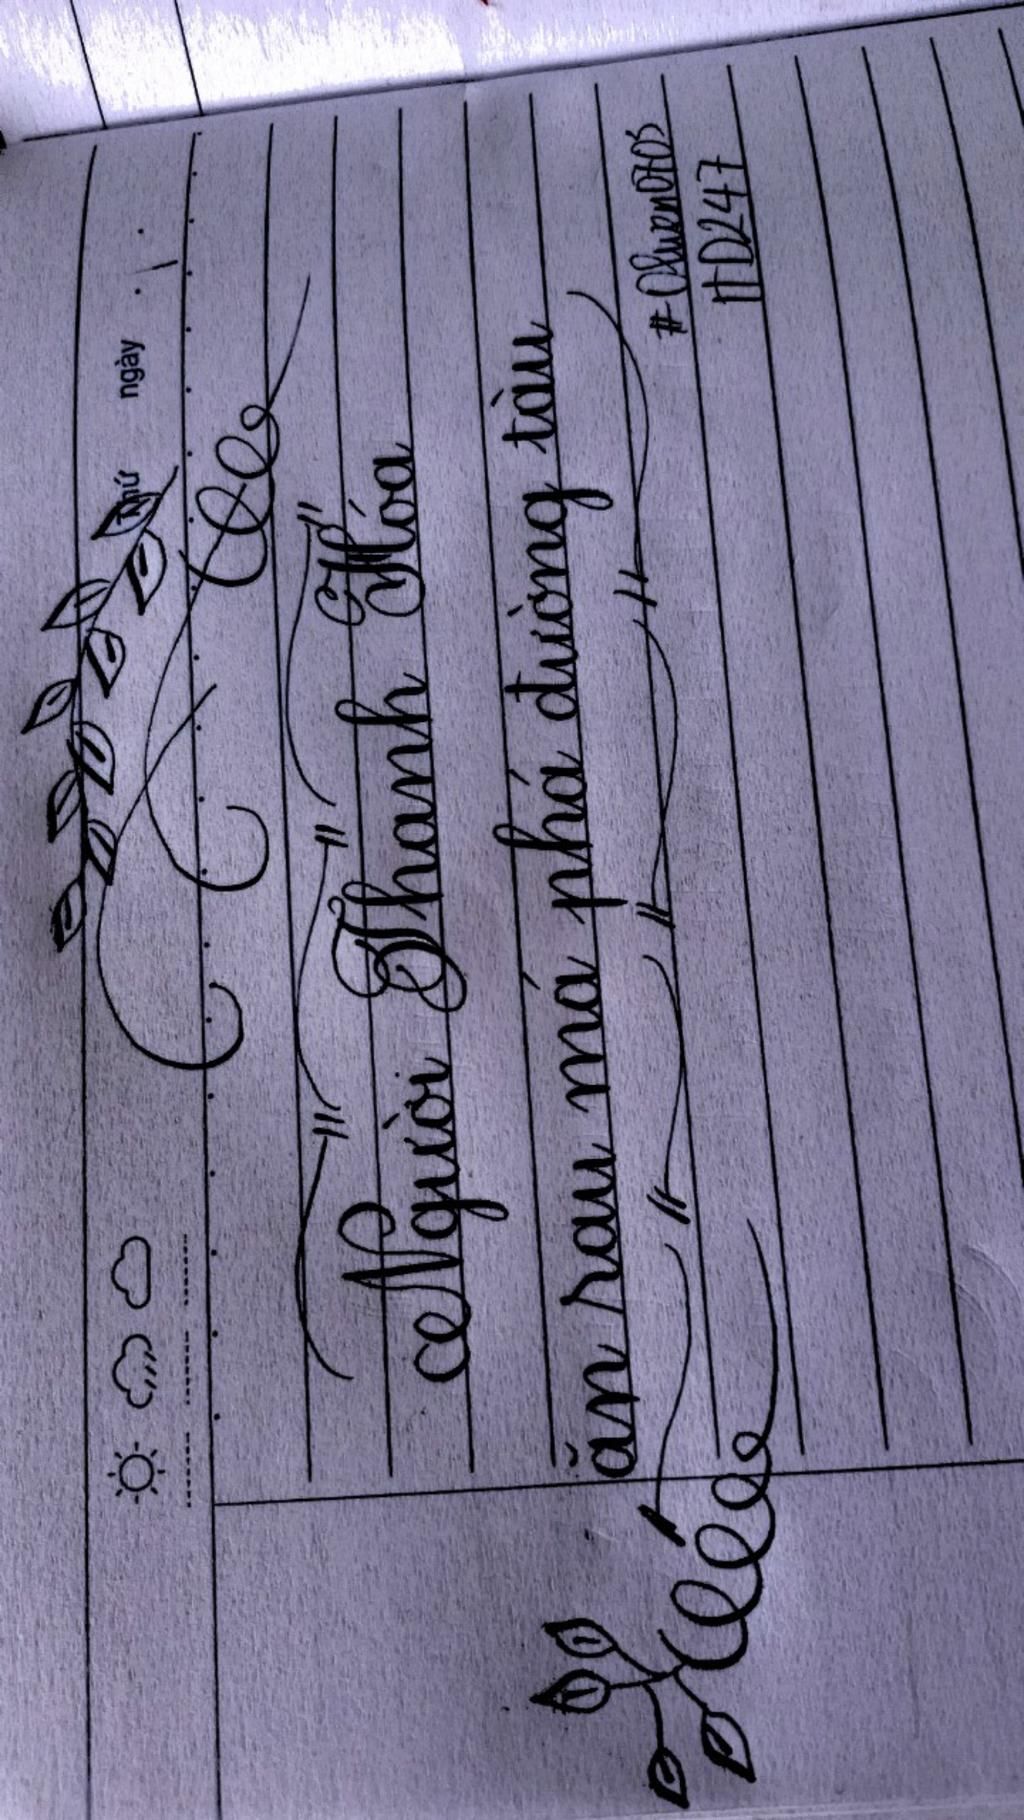 Thứ ngày
Người Thanh Hóa
ăn rau má phá đường tàu
HD247